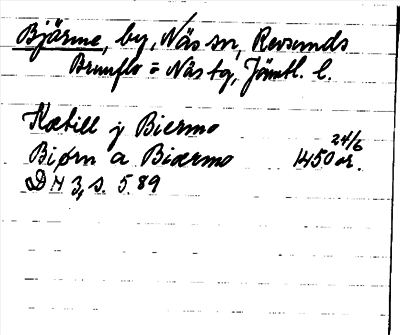 Bjärme, by, Näs sn, Revsunds
Brunflo = Näs tg, Jämtl. l.
Ketill j Biermo
24/6
Biørn a Biærmo 1450 or.
D N 3, s. 589